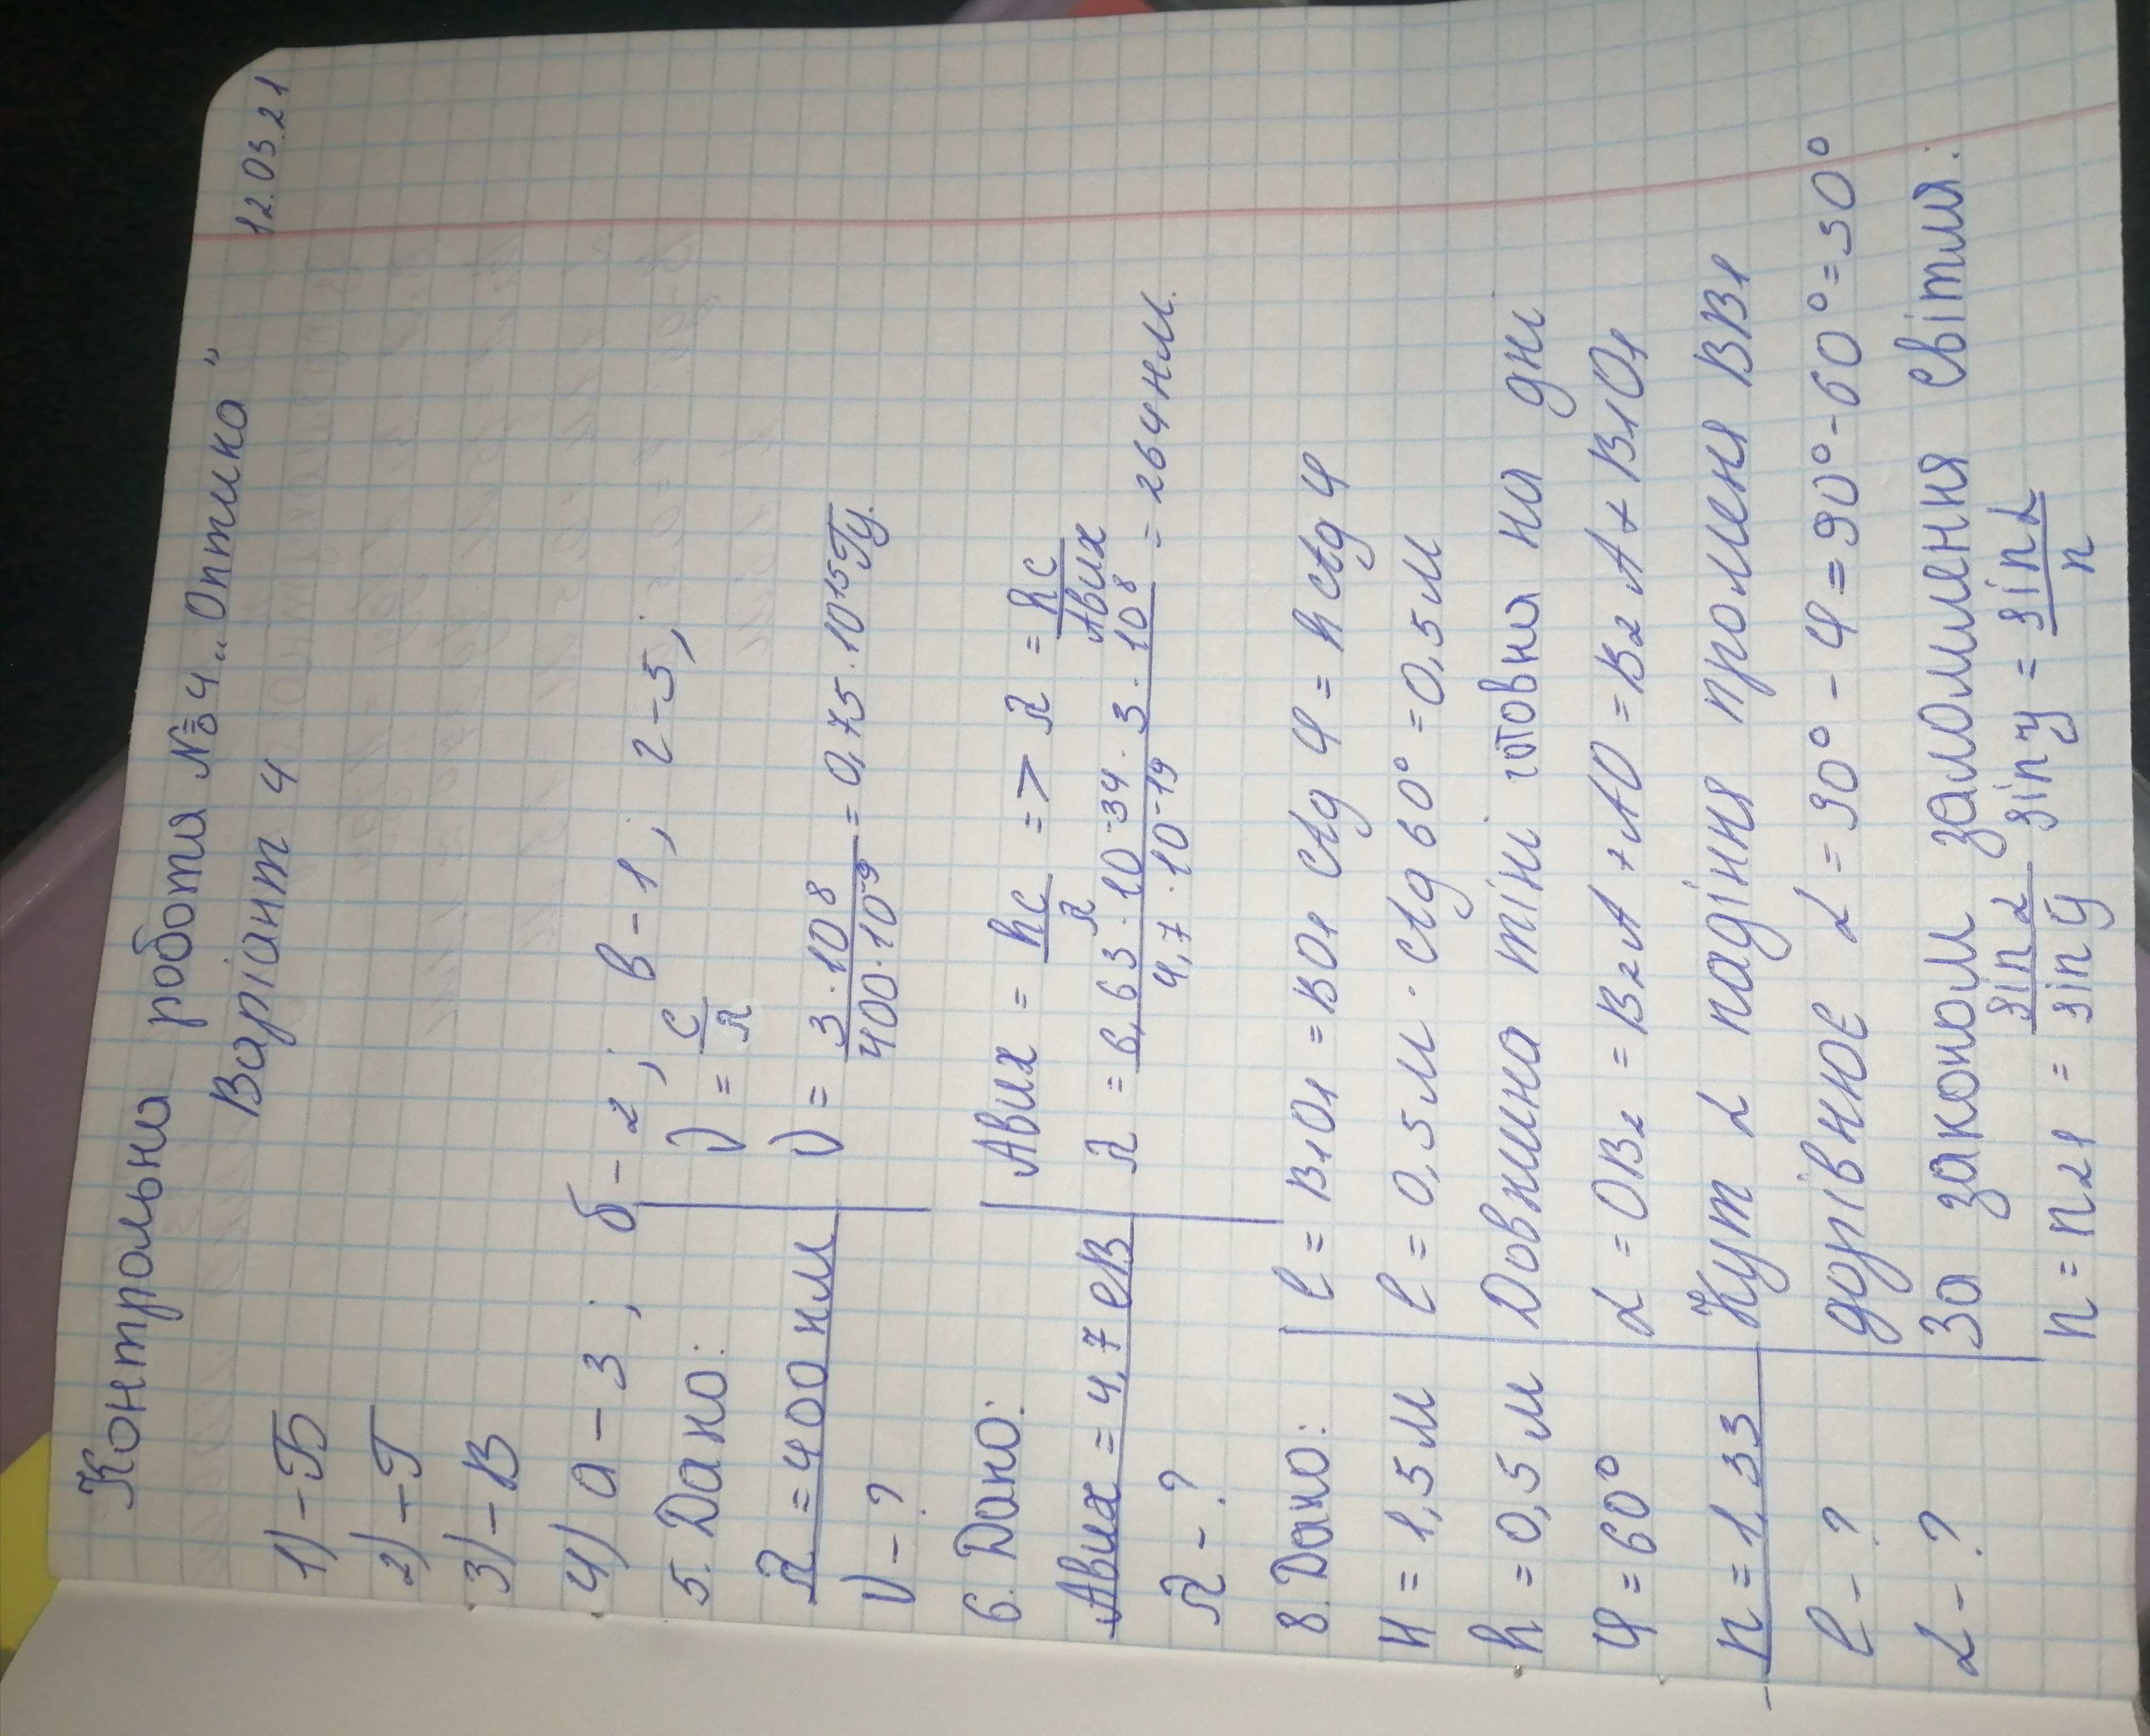 12.03.21
Контрольна робота №4 „Оптика"
Варіант 4
1) – Б
2) – Г
3) – В
4) а – 3; б – 2; в – 1; г – 5;
5. Дано:
λ = 400 нм
ν – ?
ν = c/λ
ν = 3·10⁸/400·10⁻⁹ = 0,75·10¹⁵ Гц.
6. Дано:
Aвих = 4,7 еВ
λ – ?
Aвих = hc/λ => λ = hc/Aвих
λ = 6,63·10⁻³⁴·3·10⁸/4,7·10⁻¹⁹ = 264 нм.
8. Дано:
H = 1,5 м
h = 0,5 м
φ = 60°
n = 1,33
l – ?
L – ?
l = B1O1 = BO1 ctg φ = h ctg φ
l = 0,5 м · ctg 60° = 0,5 м
Довжина тіні готовна на дні
L = OB2 = B2A + AO = B2A + B1O1
Кут α падіння променя BB1
дорівнює α = 90° – φ = 90° – 60° = 30°
За законом заломлення світла:
n = n21 = sin α/sin γ sin γ = sin α/n